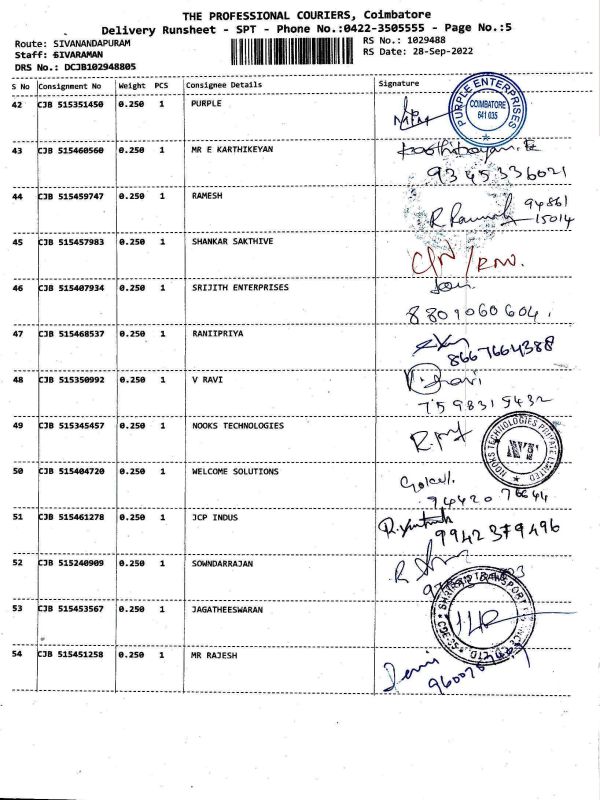 THE PROFESSIONAL COURIERS, Coimbatore
Delivery Runsheet - SPT - Phone No.:0422-3505555 - Page No.:5
Route: SIVANANDAPURAM
RS No.: 1029488
Staff: SIVARAMAN
RS Date: 28-Sep-2022
DRS No.: DCJB102948805
S No Consignment No Weight PCS Consignee Details Signature
42 CJB 515351450 0.250 1 PURPLE
PURPLE ENTERPRISES
COIMBATORE
641 035
43 CJB 515460560 0.250 1 MR E KARTHIKEYAN
9345336021
44 CJB 515459747 0.250 1 RAMESH
94861
15014
45 CJB 515457983 0.250 1 SHANKAR SAKTHIVE
46 CJB 515407934 0.250 1 SRIJITH ENTERPRISES
8801060604
47 CJB 515468537 0.250 1 RANIIPRIYA
8667664388
48 CJB 515350992 0.250 1 V RAVI
7598315432
49 CJB 515345457 0.250 1 NOOKS TECHNOLOGIES
NOOKS TECHNOLOGIES PRIVATE LIMITED
NT
50 CJB 515404720 0.250 1 WELCOME SOLUTIONS
94420 76644
51 CJB 515461278 0.250 1 JCP INDUS
9942379496
52 CJB 515240909 0.250 1 SOWNDARRAJAN
53 CJB 515453567 0.250 1 JAGATHEESWARAN
54 CJB 515451258 0.250 1 MR RAJESH